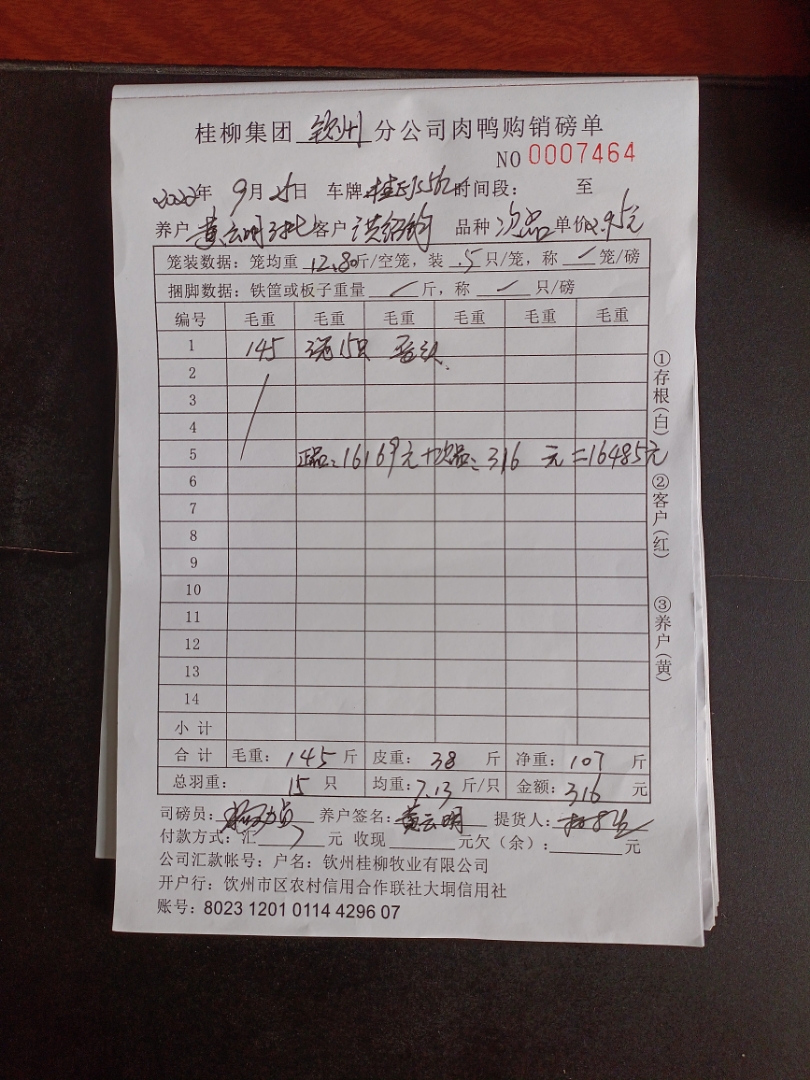 桂柳集团 钦州 分公司肉鸭购销磅单
NO 0007464
2022年 9月 25日 车牌 时间段： 至
养户 黄云明 客户 洪绍钧 品种 次品 单价2.95元
笼装数据：笼均重 12.80斤/空笼，装 .5 只/笼，称 / 笼/磅
捆脚数据：铁筐或板子重量 / 斤，称 / 只/磅
编号 毛重 毛重 毛重 毛重 毛重 毛重
1 145 3笼15只
2
3
4
5 正品：16169元+次品：316 元=16485元
6
7
8
9
10
11
12
13
14
小 计
合 计 毛重：145斤 皮重：38 斤 净重：107 斤
总羽重： 15 只 均重：7.13斤/只 金额：316 元
司磅员： 养户签名：黄云明 提货人：
付款方式：汇 元 收现 元欠（余）： 元
公司汇款帐号：户名：钦州桂柳牧业有限公司
开户行：钦州市区农村信用合作联社大垌信用社
账号：8023 1201 0114 4296 07
①存根（白）
②客户（红）
③养户（黄）